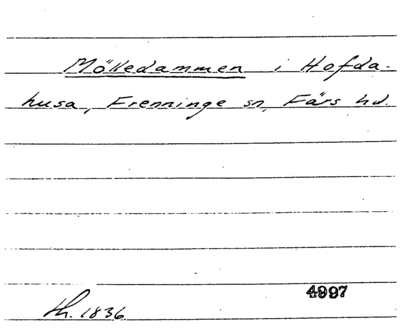 Mölledammen i Hofda-
husa, Frenninge sn, Färs hd.
4997
th. 1836